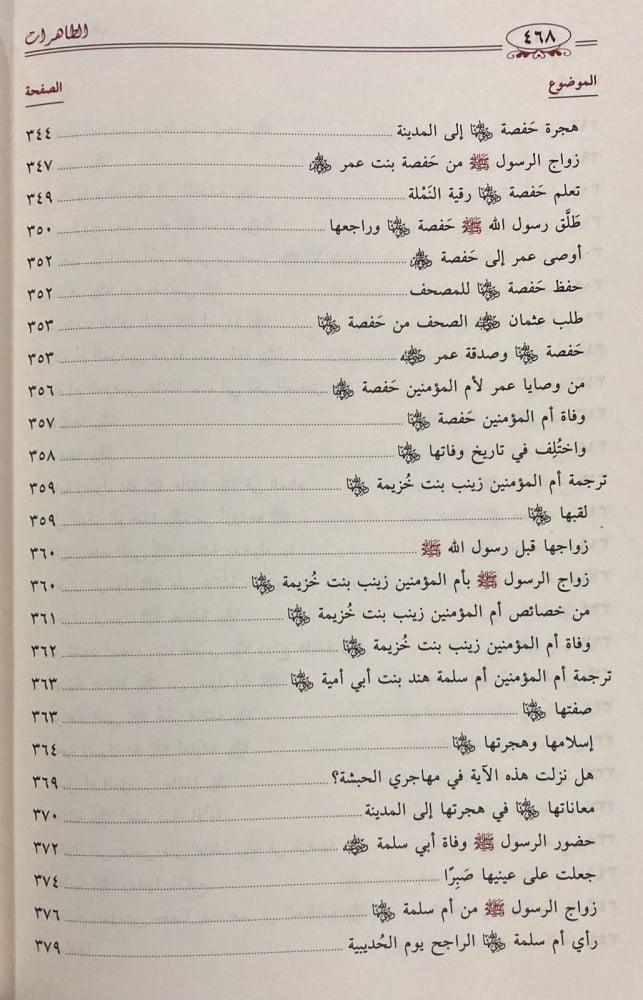 الطاهرات
٤٦٨
الموضوع الصفحة
هجرة حَفصة رضي الله عنها إلى المدينة ٣٤٤
زواج الرسول ﷺ من حَفصة بنت عمر رضي الله عنهما ٣٤٧
تعلم حَفصة رضي الله عنها رقية النَمْلة ٣٤٩
طَلَّق رسول الله ﷺ حَفصة رضي الله عنها وراجعها ٣٥٠
أوصى عمر إلى حَفصة رضي الله عنهما ٣٥٢
حفظ حَفصة رضي الله عنها للمصحف ٣٥٢
طلب عثمان رضي الله عنه الصحف من حَفصة رضي الله عنها ٣٥٣
حَفصة رضي الله عنها وصدقة عمر رضي الله عنه ٣٥٣
من وصايا عمر لأم المؤمنين حَفصة رضي الله عنها ٣٥٦
وفاة أم المؤمنين حَفصة رضي الله عنها ٣٥٧
واختُلِف في تاريخ وفاتها رضي الله عنها ٣٥٨
ترجمة أم المؤمنين زينب بنت خُزيمة رضي الله عنها ٣٥٩
لقبها رضي الله عنها ٣٥٩
زواجها قبل رسول الله ﷺ ٣٦٠
زواج الرسول ﷺ بأم المؤمنين زينب بنت خُزيمة رضي الله عنها ٣٦٠
من خصائص أم المؤمنين زينب بنت خُزيمة رضي الله عنها ٣٦١
وفاة أم المؤمنين زينب بنت خُزيمة رضي الله عنها ٣٦٢
ترجمة أم المؤمنين أم سلمة هند بنت أبي أمية رضي الله عنها ٣٦٣
صفتها رضي الله عنها ٣٦٣
إسلامها وهجرتها رضي الله عنها ٣٦٤
هل نزلت هذه الآية في مهاجري الحبشة؟ ٣٦٩
معاناتها رضي الله عنها في هجرتها إلى المدينة ٣٧٠
حضور الرسول ﷺ وفاة أبي سلمة رضي الله عنه ٣٧٢
جعلت على عينيها صَبِرًا ٣٧٤
زواج الرسول ﷺ من أم سلمة رضي الله عنها ٣٧٦
رأي أم سلمة رضي الله عنها الراجح يوم الحُديبية ٣٧٩